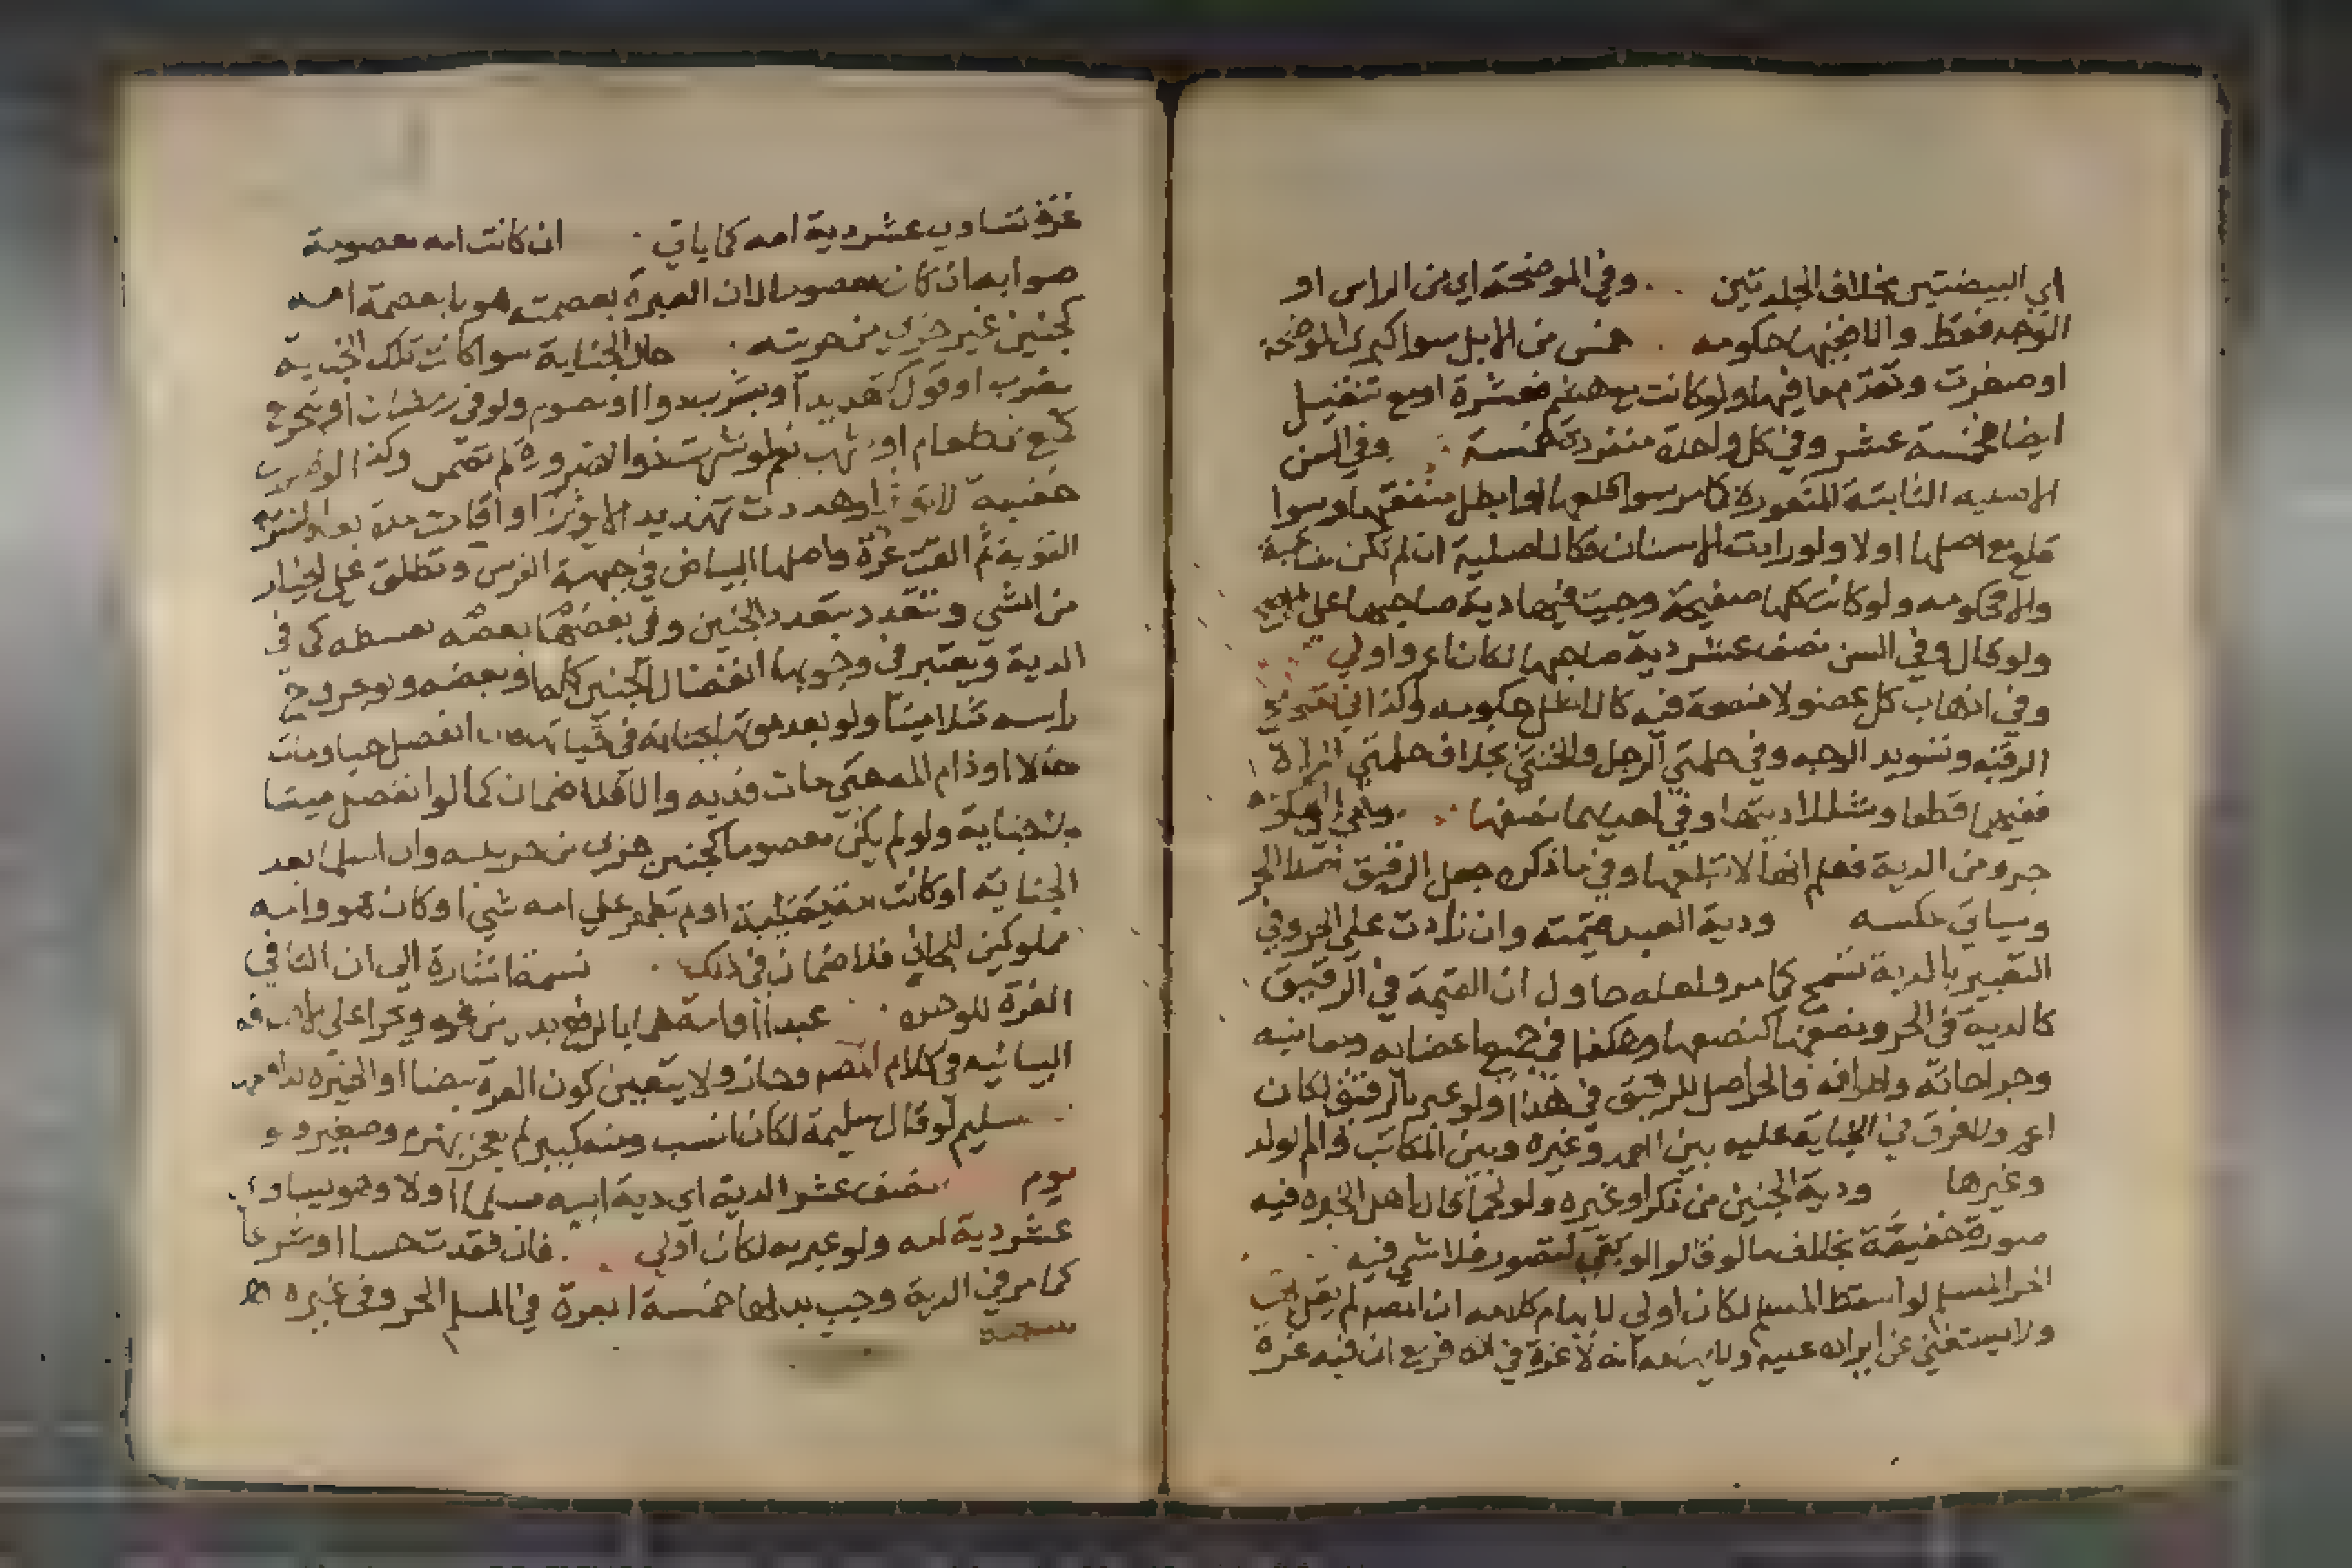 اي البيضتين بخلاف الجلدتين وفي الموضحة اي من الراس او
الوجه فقط والا ففيها حكومه خمس من الابل سوا كبرت الموضحة
او صغرت وتقدم ما فيها ولو كانت مع هشم فعشرة او مع تنقيل
ايضا فخمسة عشر وفي كل واحدة منفردة خمسة وفي السن
الاصليه الثابتة المثغورة كما مر سوا قلعها او ابطل منفعتها وسوا
قلع مع اصلها اولا ولو زادت الاسنان فكالاصلية ان لم تكن شاغية
والا فحكومه ولو كانت كلها صفيحة وجبت فيها دية صاحبها على
ولو قال وفي السن نصف عشر دية صاحبها لكان اعم واولي
وفي اذهاب كل عضو لا منفعة فيه كالاشل حكومه وكذا في تعويج
الرقبه وتسويد الوجه وفي حلمتي الرجل والخنثي بخلاف حلمتي المراة
ففيهما قطعا وشللا ديتها وفي احديهما نصفها وهي الحكومة
جزو من الدية فعلم انها لا تبلغها وفي ما ذكره جعل الرقيق اصلا للحر
وسياتي عكسه ودية العبد قيمته وان زادت علي الحر وفي
التعبير بالدية تسمح كما مر ولعله حاول ان القيمة في الرقيق
كالدية في الحر ونصفها كنصفها وهكذا في جميع اعضايه ومعانيه
وجراحاته واطرافه فالحر اصل للرقيق في هذا ولو عبر بالرقيق لكان
اعم ولا فرق في الجناية عليه بين العمد وغيره وبين المكاتب وام الولد
وغيرها ودية الجنين من ذكر او غيره ولو لحما قال اهل الخبره فيه
صورة خفيفة بخلاف ما لو قالوا لو بقي لتصور فلا شي فيه
الحر المسلم لو اسقط المسلم لكان اولي لايهام كلامه ان المصم لم يقل
ولا يستغني عن ايراده عليه ولايهامه انه لا غرة في الا فريع ان فيه غرة
غرة تساوي عشر دية امه كما ياتي ان كانت امه معصومة
صوابه ان كان معصوما لان العبرة بعصمته هو لا بعصمة امه
كجنين غير حربي من حربيته حال الجناية سوا كانت تلك الجناية
بضرب او قول كتهديد او بشرب دوا او بصوم ولو في رمضان او بتجويع
كمنع نطعام او شراب نعم لو شربت دوا لضرورة لم تضمن وكذا لو ضرب
خفيفة لا تؤثر او هددت تهديد الا يؤثر او اقامت مدة بعد
القوية ثم القت غرة واصلها البياض في جبهة الفرس وتطلق على الخيار
من الشي وتتعدد بتعدد الجنين وفي بعضها بعضه بقسطه كما في
الدية ويعتبر في وجوبها انفصال الجنين كله او بعضه ولو بخروج
راسه مثلا ميتا ولو بعد موتها بجناية في حياتها انفصل حيا ومات
حالا او دام المه حتي مات فديه والا فلا ضمان كما لو انفصل ميتا
بلا جناية ولو لم يكن معصوما كجنين حربي من حربيه وان اسلما بعد
الجناية او كانت خفيفة او لم تظهر علي امه شي او كان هو وامه
مملوكين للجاني فلا ضمان في ذلك نسمة اشارة الي ان التا في
الغرة للوحده عبد او امة هما بالرفع بدل من غره وبجرا على الاضافه
البيانيه في كلام المصم وجاز ولا يتعين كون الغرة بيضا او الخيره
سليم لو قال سليمة لكان انسب ومنه كبير لم يعجز بهرم وصغير و
يوم نصف عشر الدية اي دية ابيه مسلما اولا وهو يساوي
عشر دية امه ولو عبر به لكان اولي فان فقدت حسا او شرعا
كما مر في الدية وجب بدلها خمسة ابعرة في المسلم الحر وفي غيره